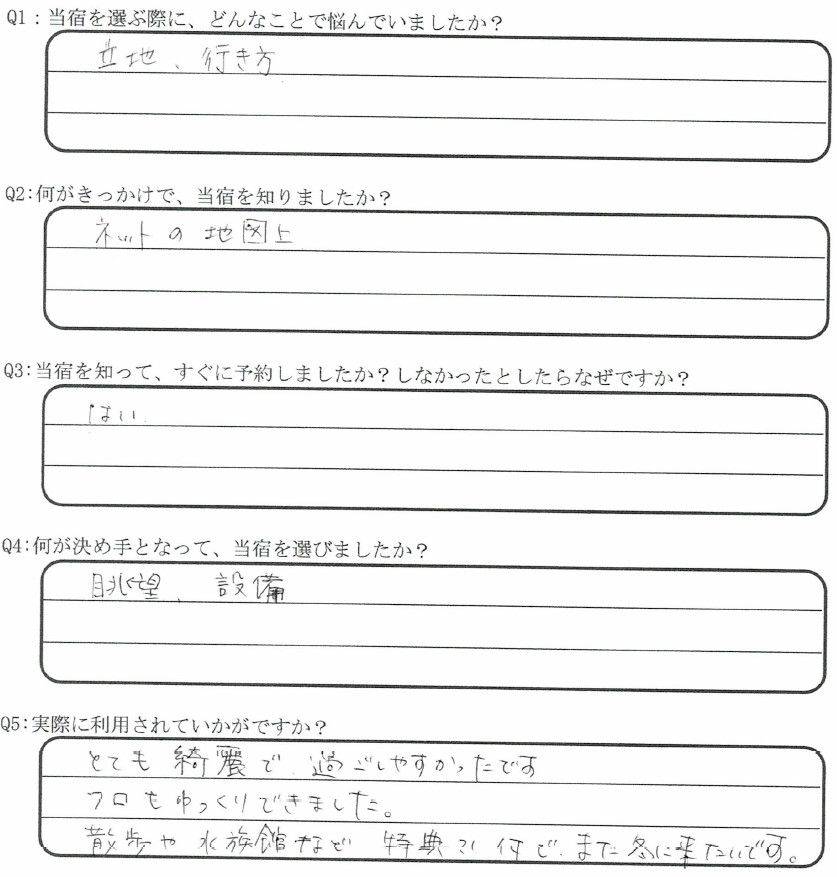 Q1：当宿を選ぶ際に、どんなことで悩んでいましたか？
立地、行き方
Q2:何がきっかけで、当宿を知りましたか？
ネットの地図上
Q3:当宿を知って、すぐに予約しましたか？しなかったとしたらなぜですか？
はい
Q4:何が決め手となって、当宿を選びましたか？
眺望、設備
Q5:実際に利用されていかがですか？
とても綺麗で過ごしやすかったです
フロもゆっくりできました。
散歩や水族館など 特典 何で、また冬に来たいです。